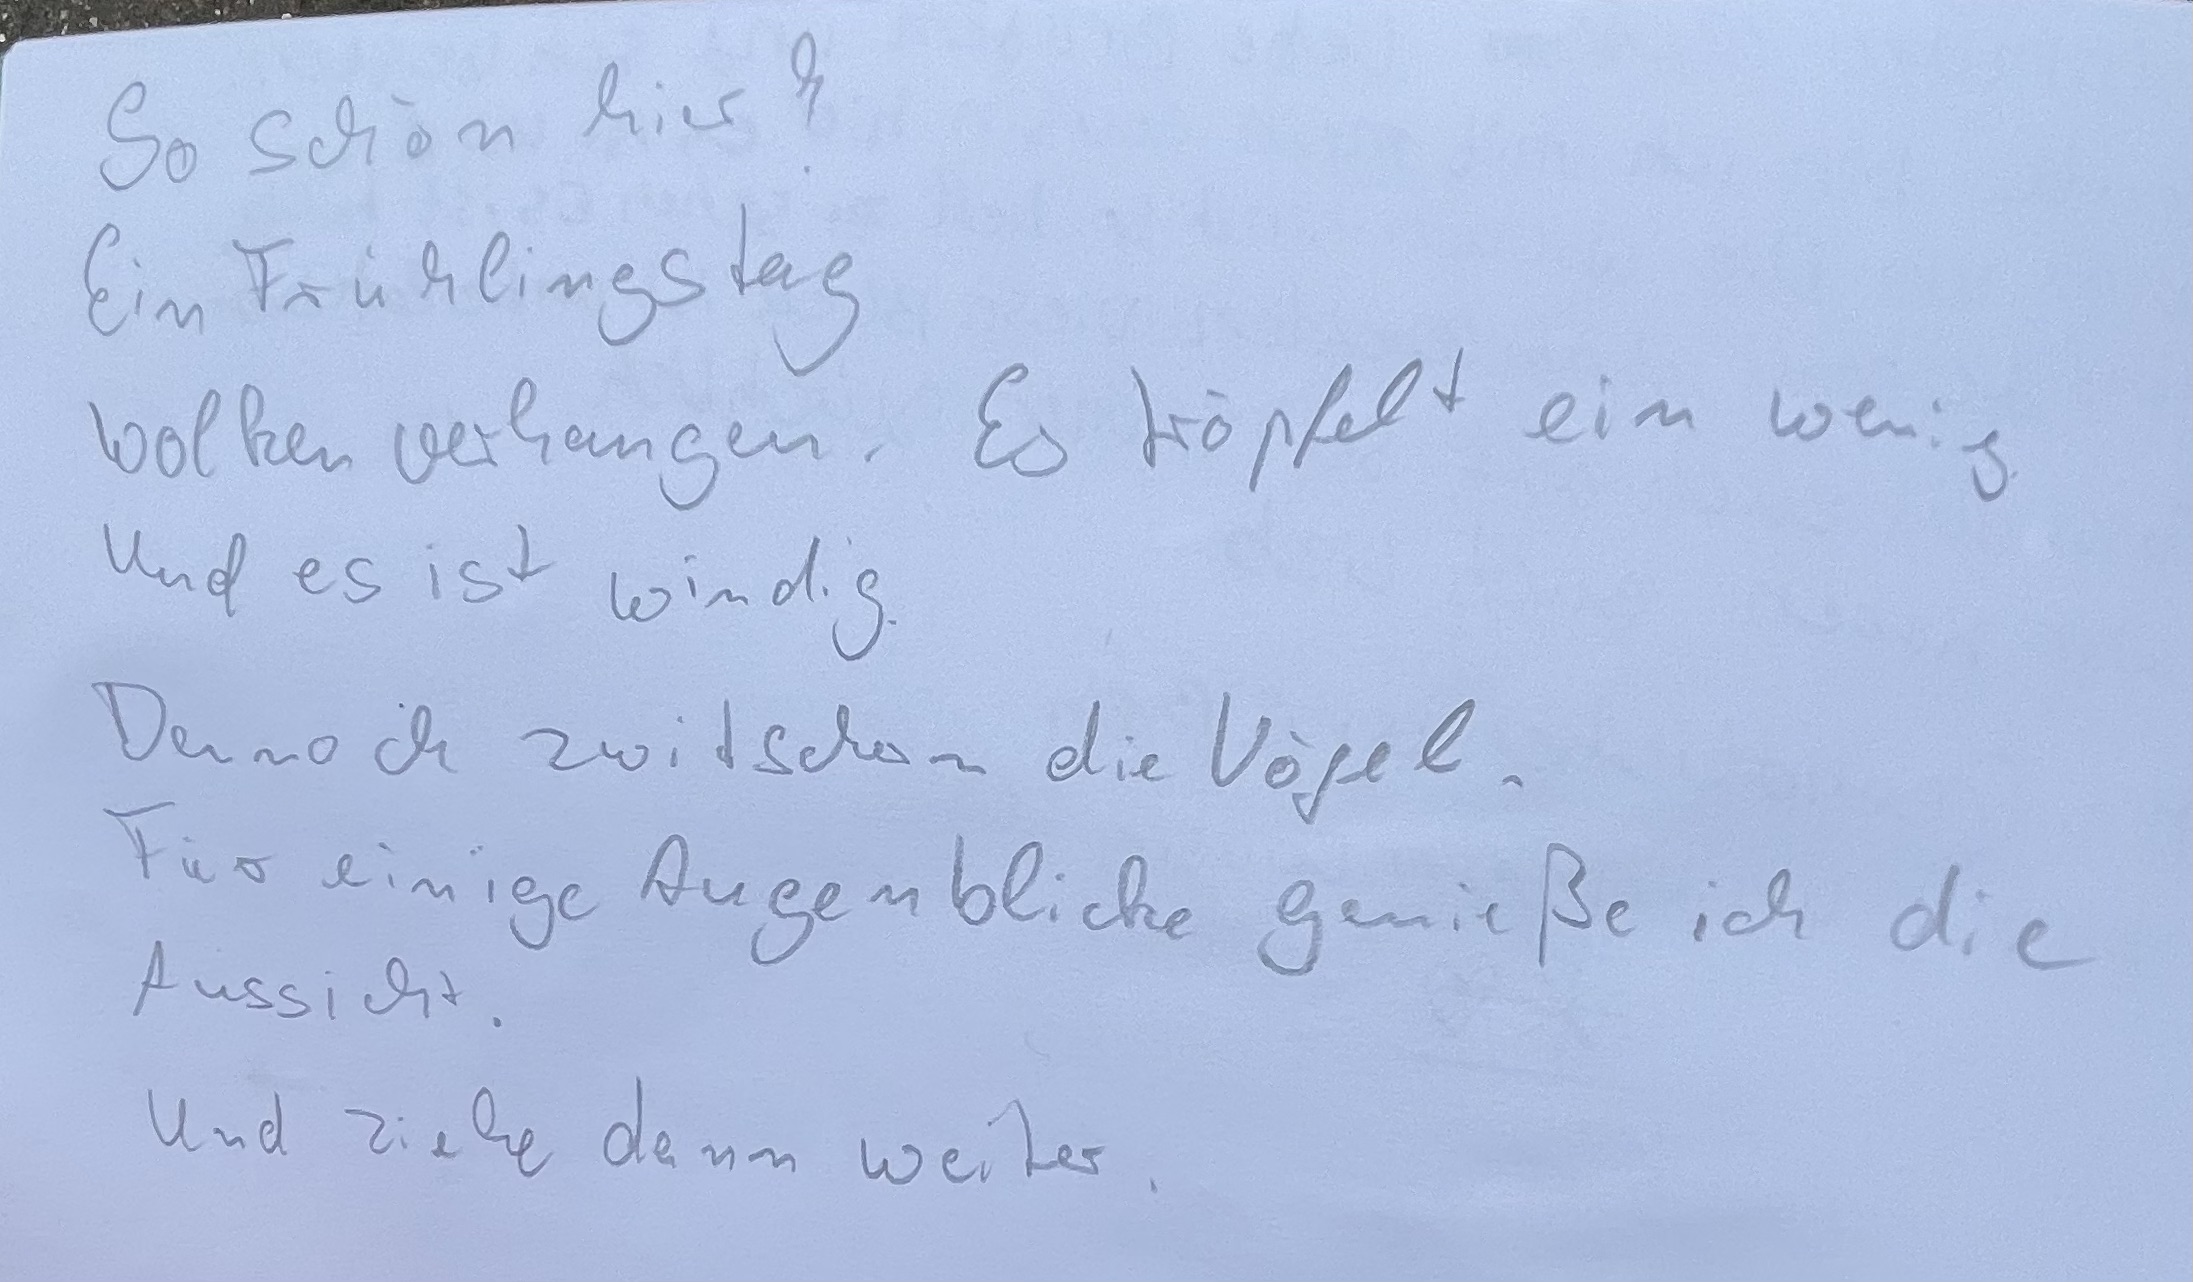 So schön hier?
Ein Frühlingstag
Wolken verhangen. Es tröpfelt ein wenig.
Und es ist windig.
Dennoch zwitschern die Vögel.
Für einige Augenblicke genieße ich die
Aussicht.
Und ziehe dann weiter.